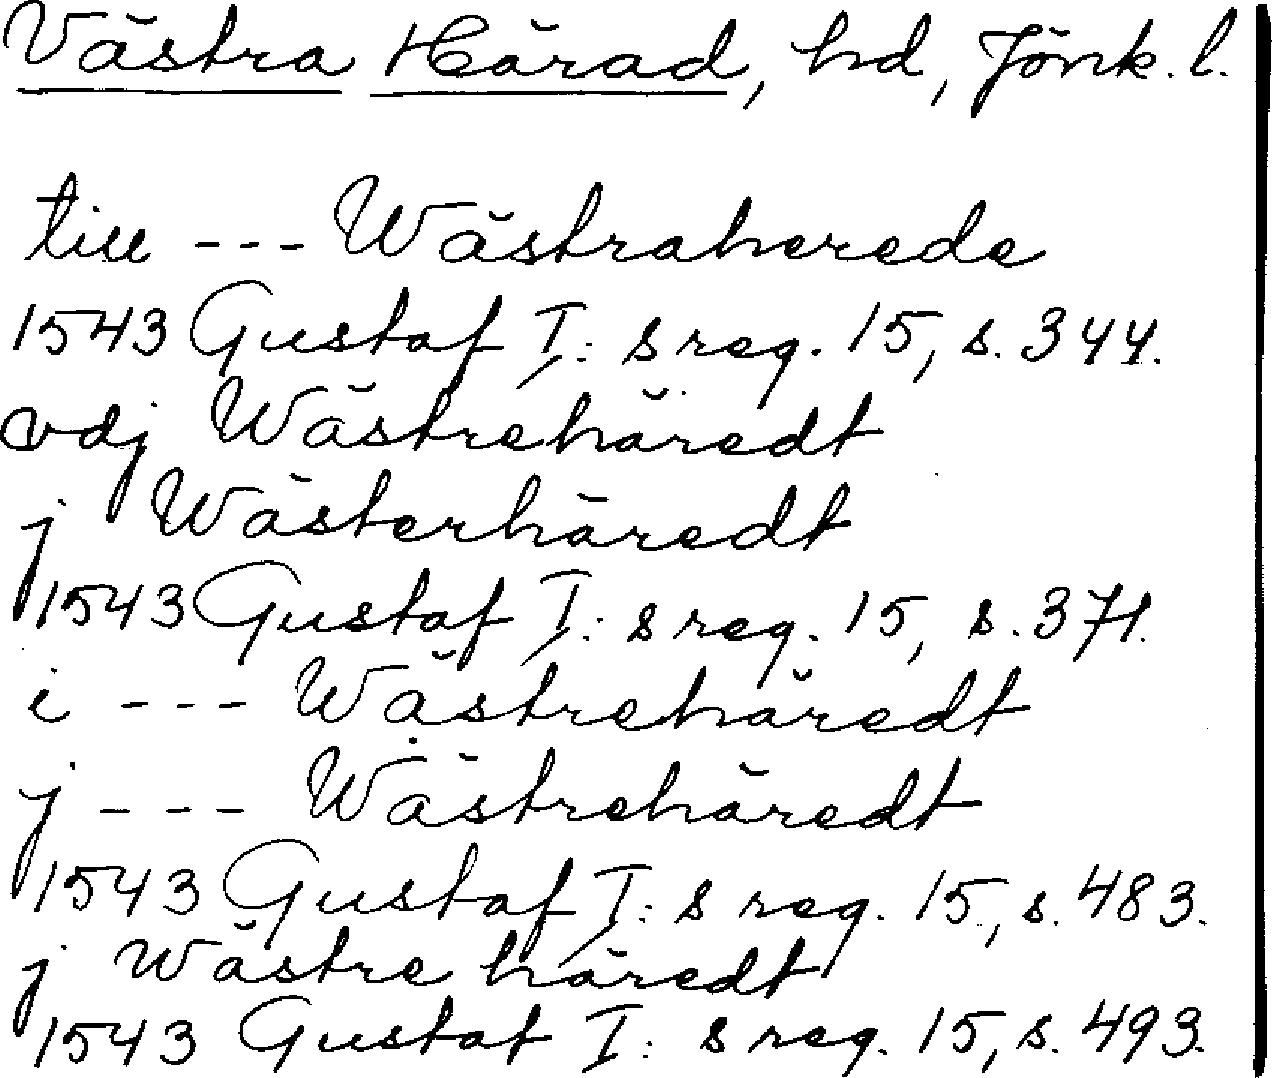 Västra Härad, hd, Jönk. l.
till --- Wästraherede
1543 Gustaf I: s reg. 15, s. 344.
vdj Wästrehäredt
j Wästerhäredt
1543 Gustaf I: s reg. 15, s. 371.
i --- Wästrehäredt
j --- Wästrehäredt
1543 Gustaf I: s reg. 15, s. 483.
j Wästre häredt
1543 Gustaf I: s reg. 15, s. 493.